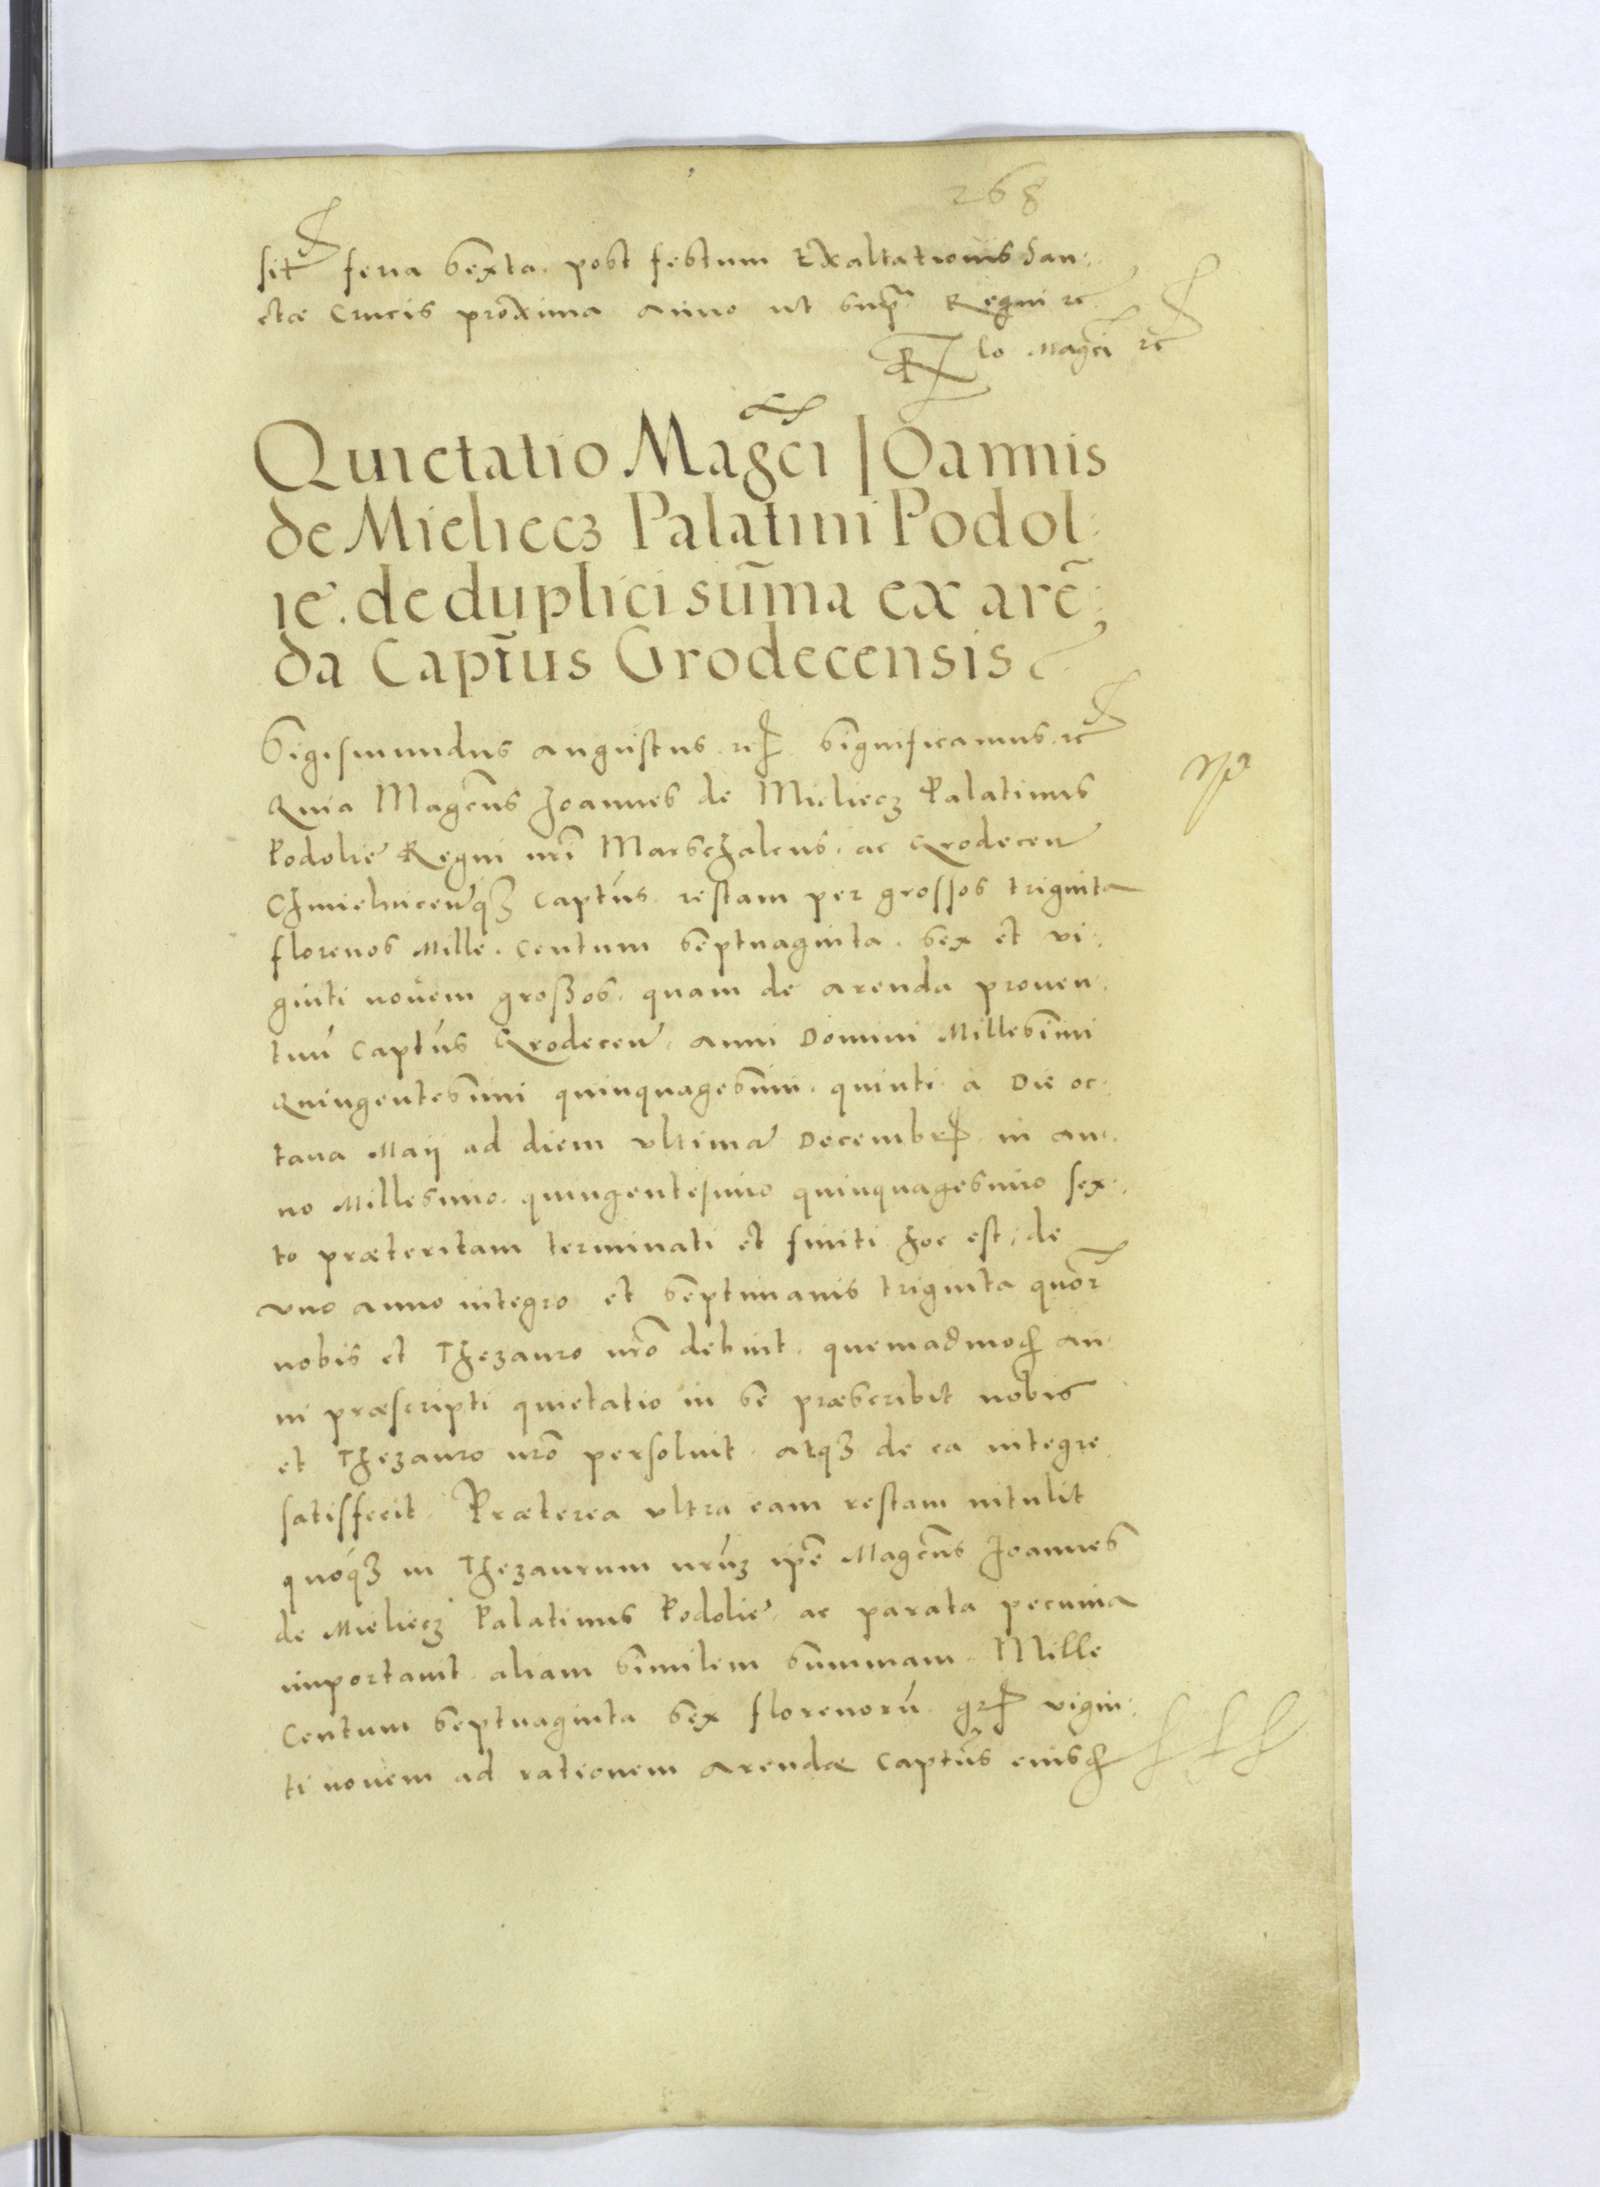 268
sit feria sexta post festum Exaltationis San:
ctæ Crucis proxima Anno ut supra Regni rc
Rlo Magci rc
Quietatio Magci Joannis
de Mieliecz Palatini Podol:
ie. de duplici sum̄a ex arē:
da Captus Grodecensis
Sigismundus augustus rc Significamus rc
Quia Magcus Joannes de Mieliecz Palatinus
Podolie Regni nri Marschalcus ac Grodecen
Chmielnicenq3 Captus restam per grossos triginta
florenos Mille Centum Septuaginta Sex et vi:
ginti novem grossos quam de arenda proven:
tuu Captus Grodecen anni Domini Millesimi
Quingentesimi quinquagesimi quinti a Die oc:
taua Maij ad diem ultima Decembr in an:
no Millesimo quingentesimo quinquagesimo sex:
to præteritam terminati et finiti hoc est de
uno anno integro et Septimanis triginta quor
nobis et Thezauro nro debuit quemadmod an:
ni præscripti quietatio in se præscribit nobis
et Thezauro nro persoluit atq3 de ea integre
satisfecit Præterea ultra eam restam intulit
quoq3 in Thezaurum nru3 ipe Magcus Joannes
de Mieliecz Palatinus Podolie ac parata pecunia
importavit aliam Similem Summam Mille
Centum Septuaginta Sex florenorū gr vigin:
ti novem ad rationem Arendæ Captus eiusd